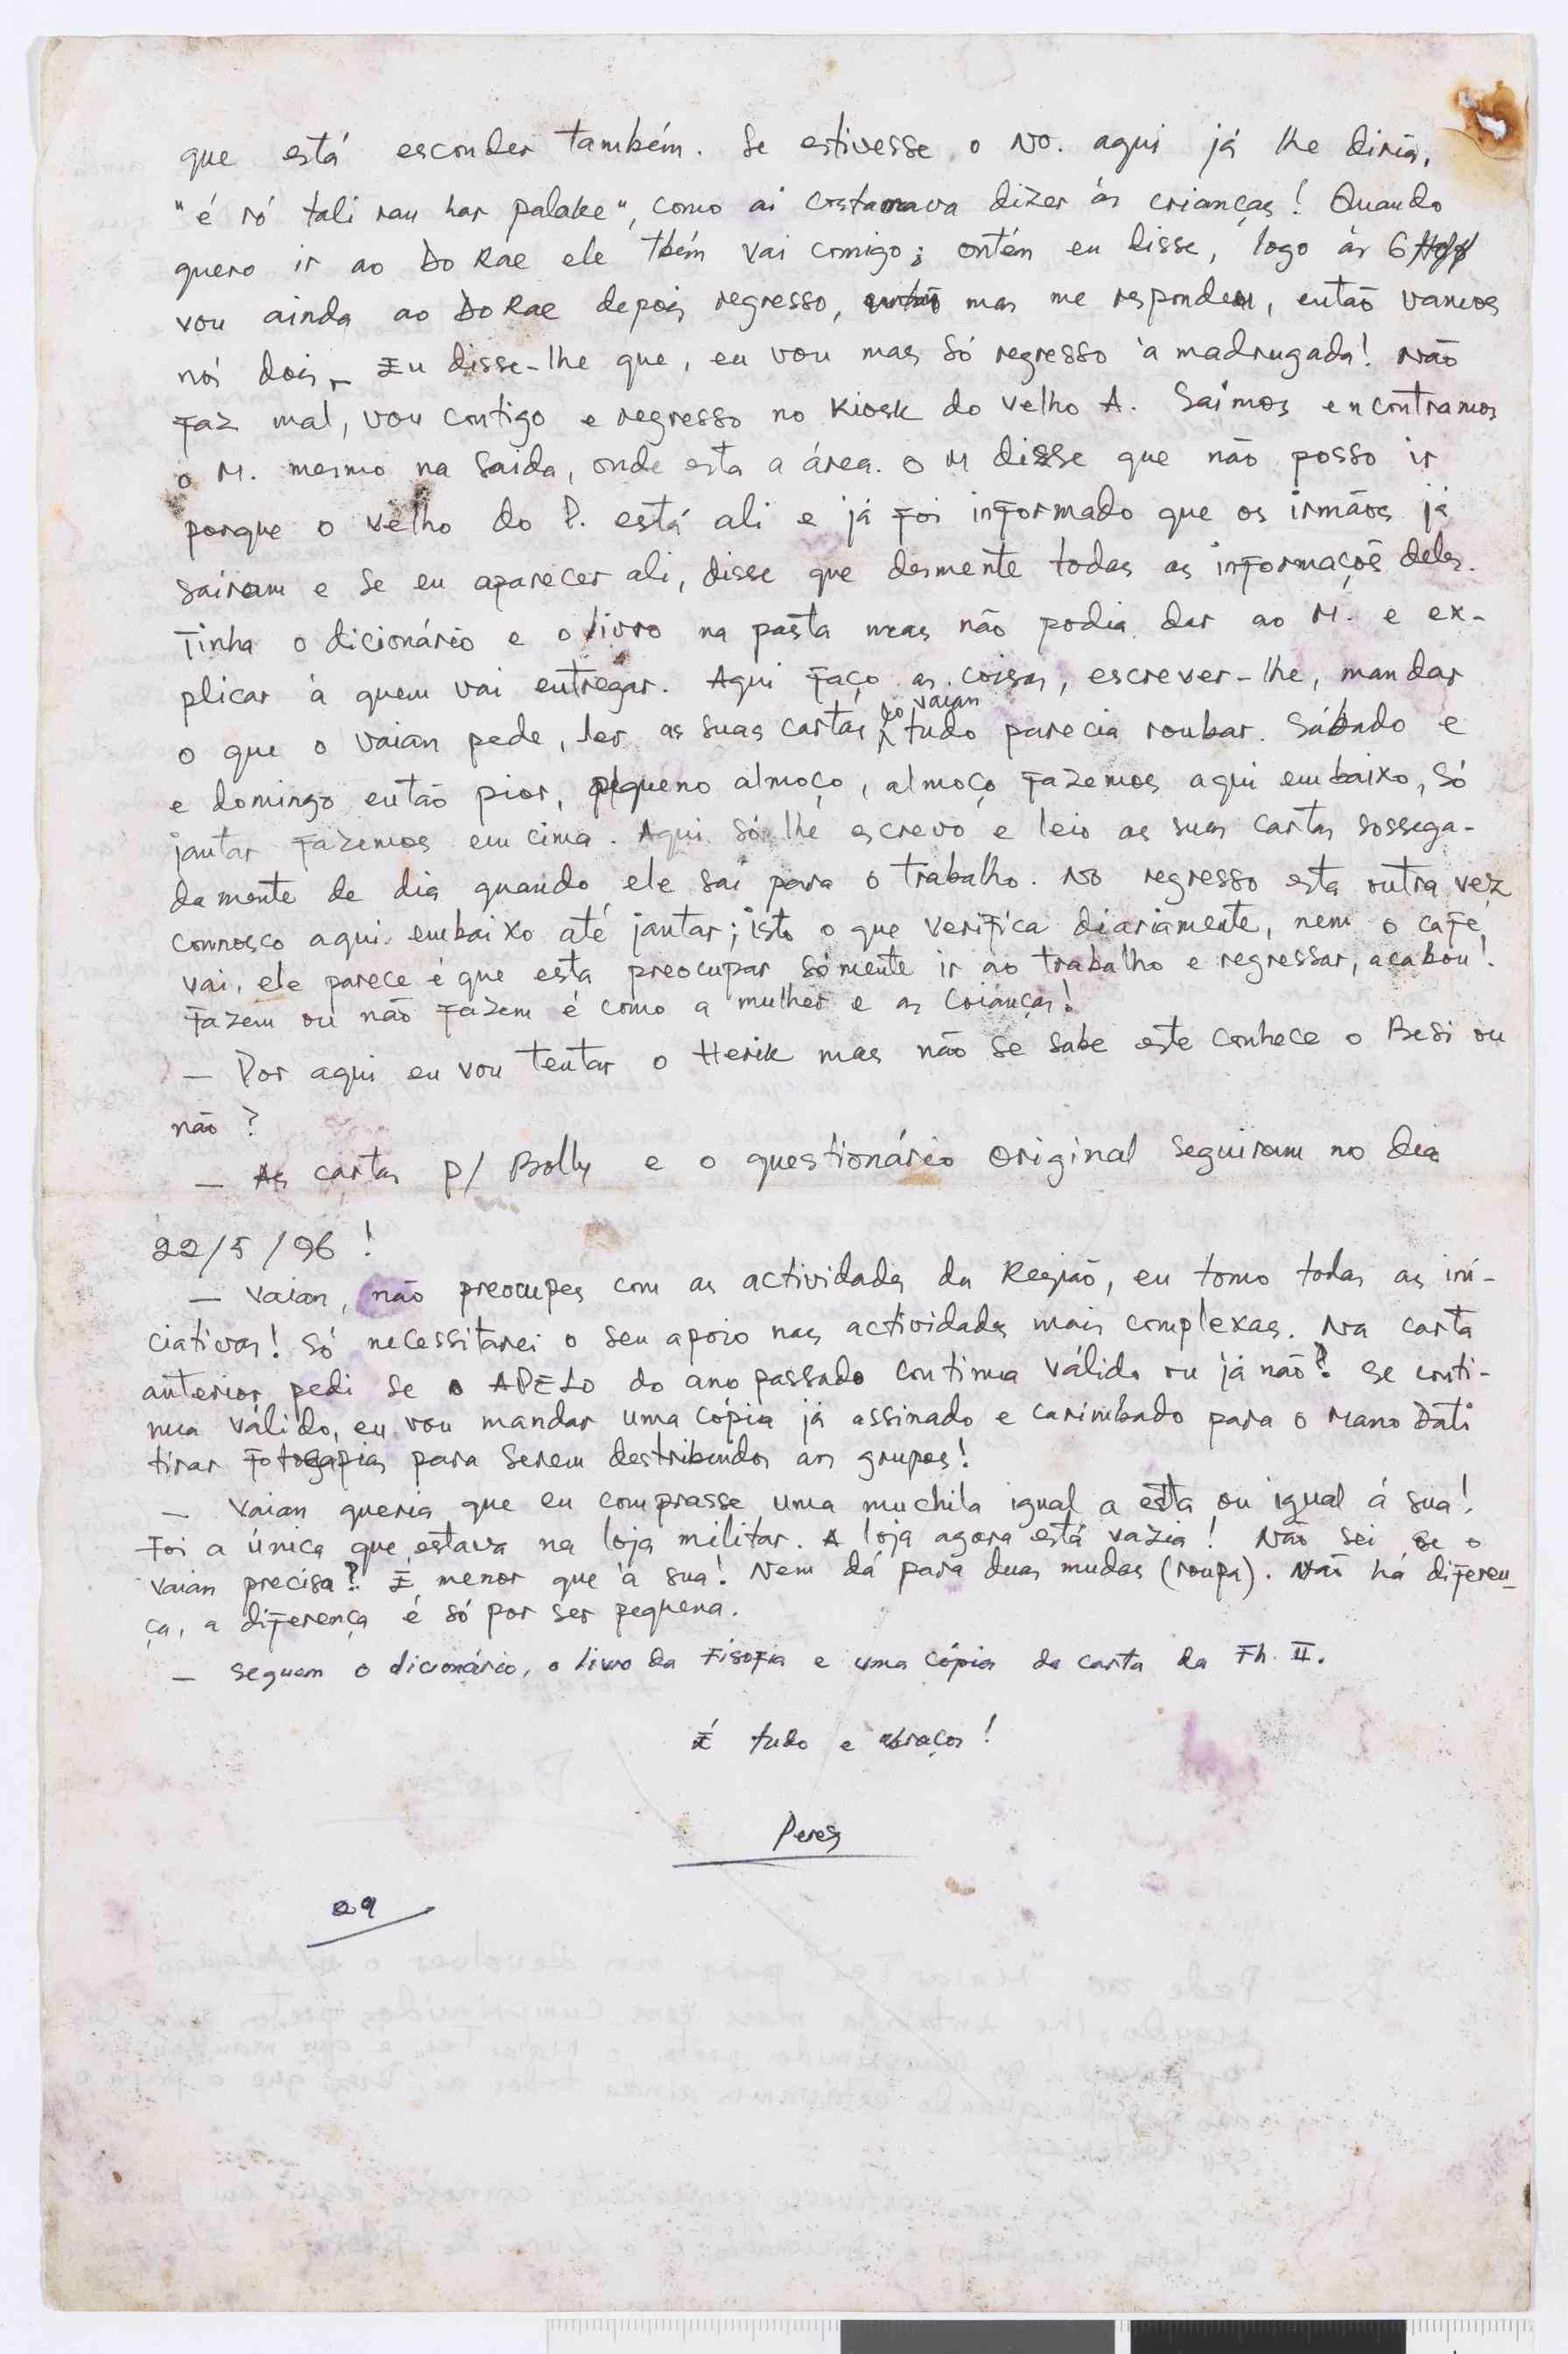 que está esconder também. Se estivesse o No. aqui já lhe diria,
"é só tali rau har palake", como ai costumava dizer às crianças! Quando
quero ir ao Do Rae ele tbém vai comigo; ontém eu disse, logo às 6
vou ainda ao Do Rae depois regresso, mas me responden, então vamos
nós dois. Eu disse-lhe que, eu vou mas só regresso à madrugada! Não
faz mal, vou contigo e regresso no Kiosk do velho A. Saímos encontramos
o M. mesmo na saida, onde esta a área. O M disse que não posso ir
porque o velho do P. está ali e já foi informado que os irmãos já
sairam e se eu aparecer ali, disse que desmente todas as informaçõe deles.
Tinha o dicionário e o livro na pasta mas não podia dar ao M. e ex-
plicar à quem vai entregar. Aqui faço as coisas, escrever-lhe, mandar
o que o vaian pede, ler as suas cartas do vaian tudo parecia roubar. Sábado e
e domingo então pior, pequeno almoço, almoço fazemos aqui embaixo, só
jantar fazemos em cima. Aqui só lhe escrevo e leio as suas cartas sossega-
damente de dia quando ele sai para o trabalho. No regresso esta outra vez
connosco aqui embaixo até jantar; isto o que verifica diariamente, nem o café
vai, ele parece é que esta preocupar sómente ir ao trabalho e regressar, acabou!
Fazem ou não fazem é como a mulher e as crianças!
— Por aqui eu vou tentar o Herik mas não se sabe este conhece o Besi ou
não?
— As cartas p/ Bolly e o questionário original seguiram no dia
22/5/96!
— Vaian, não preocupes com as actividades da Região, eu tomo todas as ini-
ciativas! Só necessitarei o seu apoio nas actividades mais complexas. Na carta
anterior pedi se o APELO do ano passado continua válido ou já não? Se conti-
nua válido, eu vou mandar uma cópia já assinado e carimbado para o Mano Dati
tirar fotocapias para serem destribuidos aos grupos!
— Vaian queria que eu comprasse uma muchila igual a esta ou igual á sua!
Foi a única que estava na loja militar. A loja agora está vazia! Não sei se o
vaian precisa? É menor que à sua! Nem dá para duas mudas (roupa). Não há diferen-
ça, a diferença é só por ser pequena.
— Seguem o dicionário, o livro da Fisofia e uma cópia da carta da Fh. II.
É tudo e abraços!
Peres
29